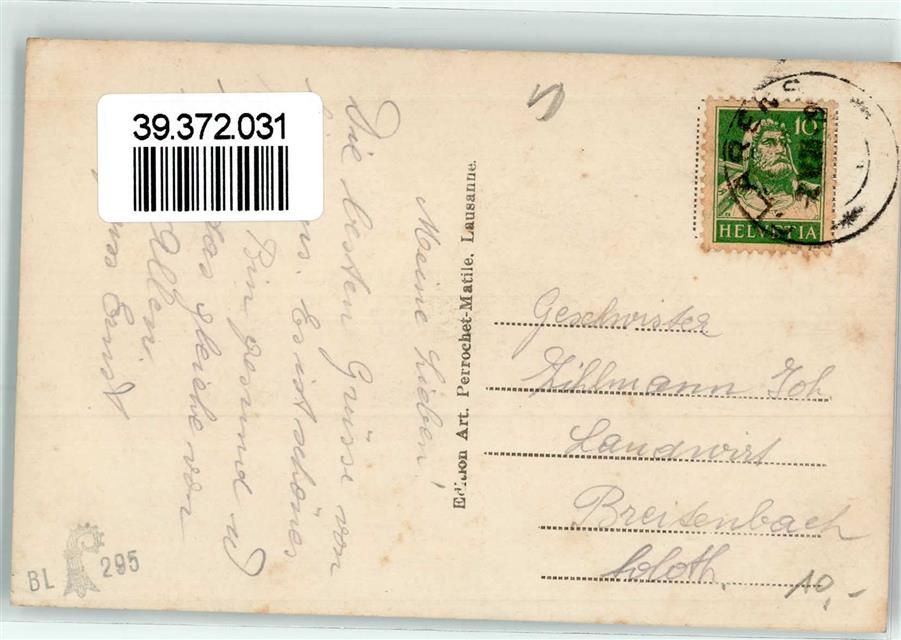 39.372.031
Meine Lieben!
Die besten Grüsse von
Es ist schönes
Bin gesund u
das gleiche von
Allen.
Ernst
Edition Art. Perrochet-Matile, Lausanne.
10
HELVETIA
Geschwister
Zihlmann Joh
Landwirt
Breitenbach
Soloth.
10.-
BL 295